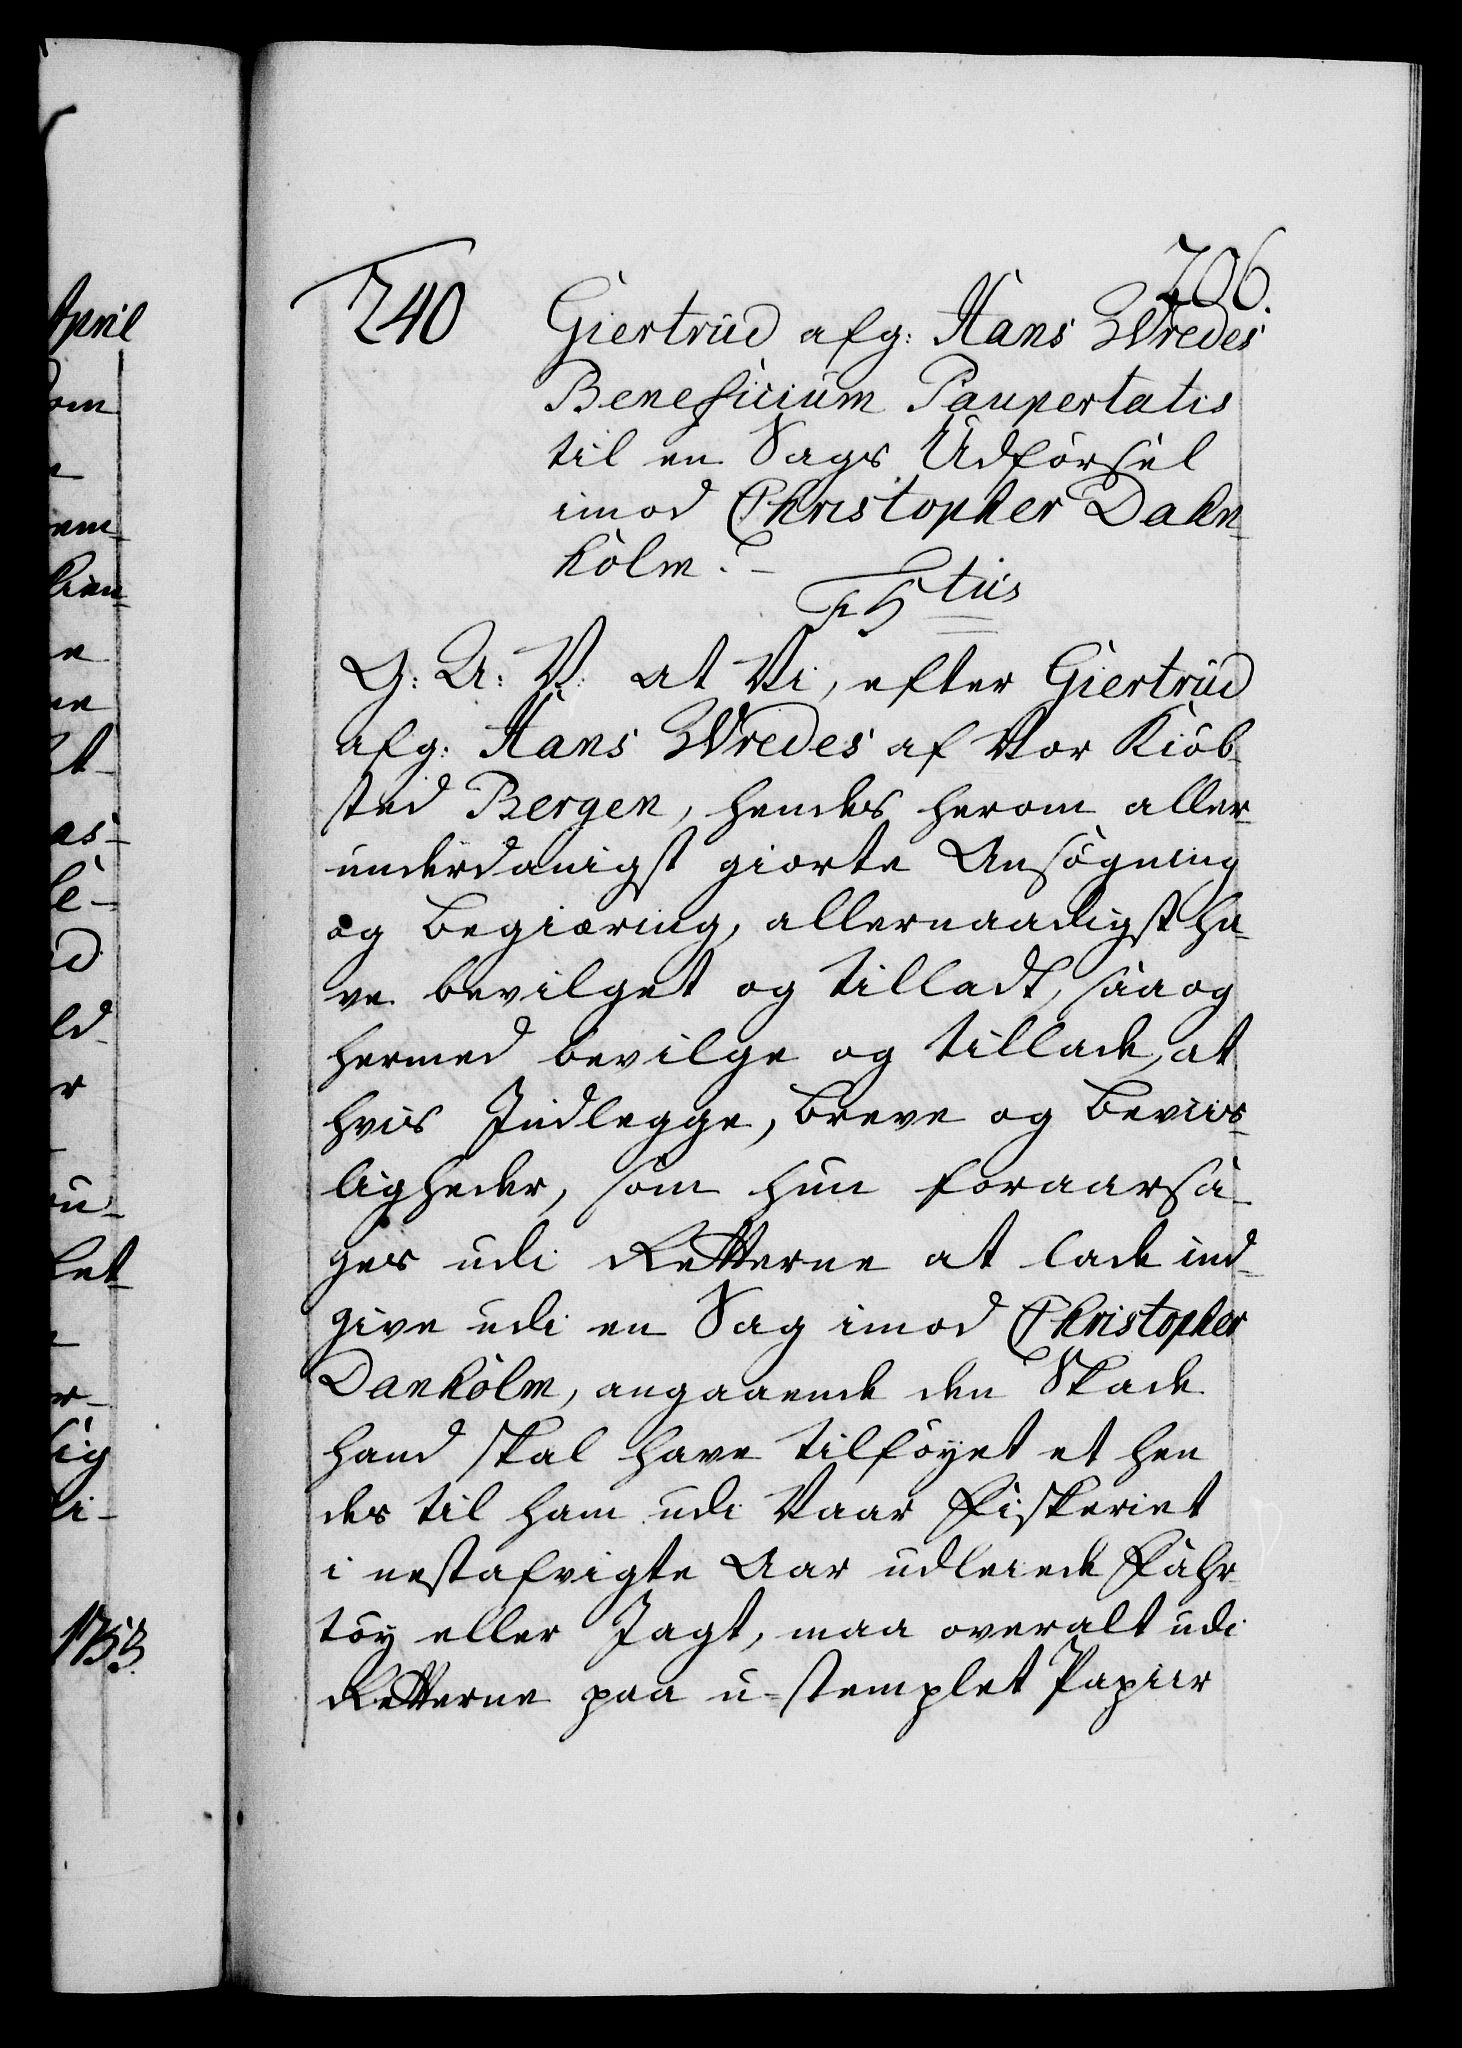 April
om
em-
kien-
e
ne
et-
as-
le-
d
ld
r
ket-
r-
sig
li-
1753.
206.
240
Giertrüd afg: Hans Wredes
Beneficium Paupertatis
til en Sags Udførsel
imod Christopher Dahn-
kolm.
F5tus
G: A: V. at Vi, efter Giertrüd
afg: Hans Wredes af Vor Kiøb-
sted Bergen, hendes herom aller-
underdanigst giorte Ansøgning
og Begiæring, allernaadigst ha-
ve bevilget og tilladt, saa og
hermed bevilge og tillade, at
hvis Indlegge, Breve og Beviis-
ligheder, som hun foraarsa-
ges udi Retterne at lade ind-
give udi en Sag imod Christopher
Dankolm, angaaende den Skade
hand skal have tilføyet et hen
des til ham udi Vaar Fiskeriet
i nestafvigte Aar udleiede Fahr-
tøy eller Jagt, maa overalt udi
Retterne paa u-stemplet Papiir